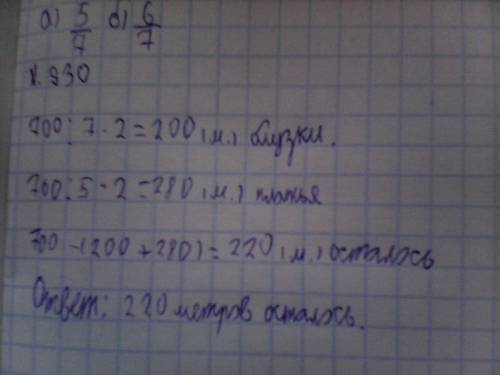 а) 5/7 б) 6/7
N. 930
700 : 7 · 2 = 200 (м.) блузки.
700 : 5 · 2 = 280 (м.) платья
700 - (200 + 280) = 220 (м.) осталось
Ответ: 220 метров осталось.